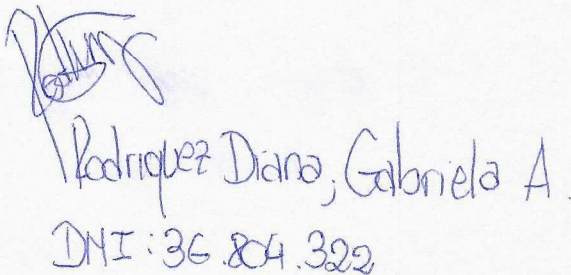 Rodriguez Diana, Gabriela A.
DNI: 36.804.322